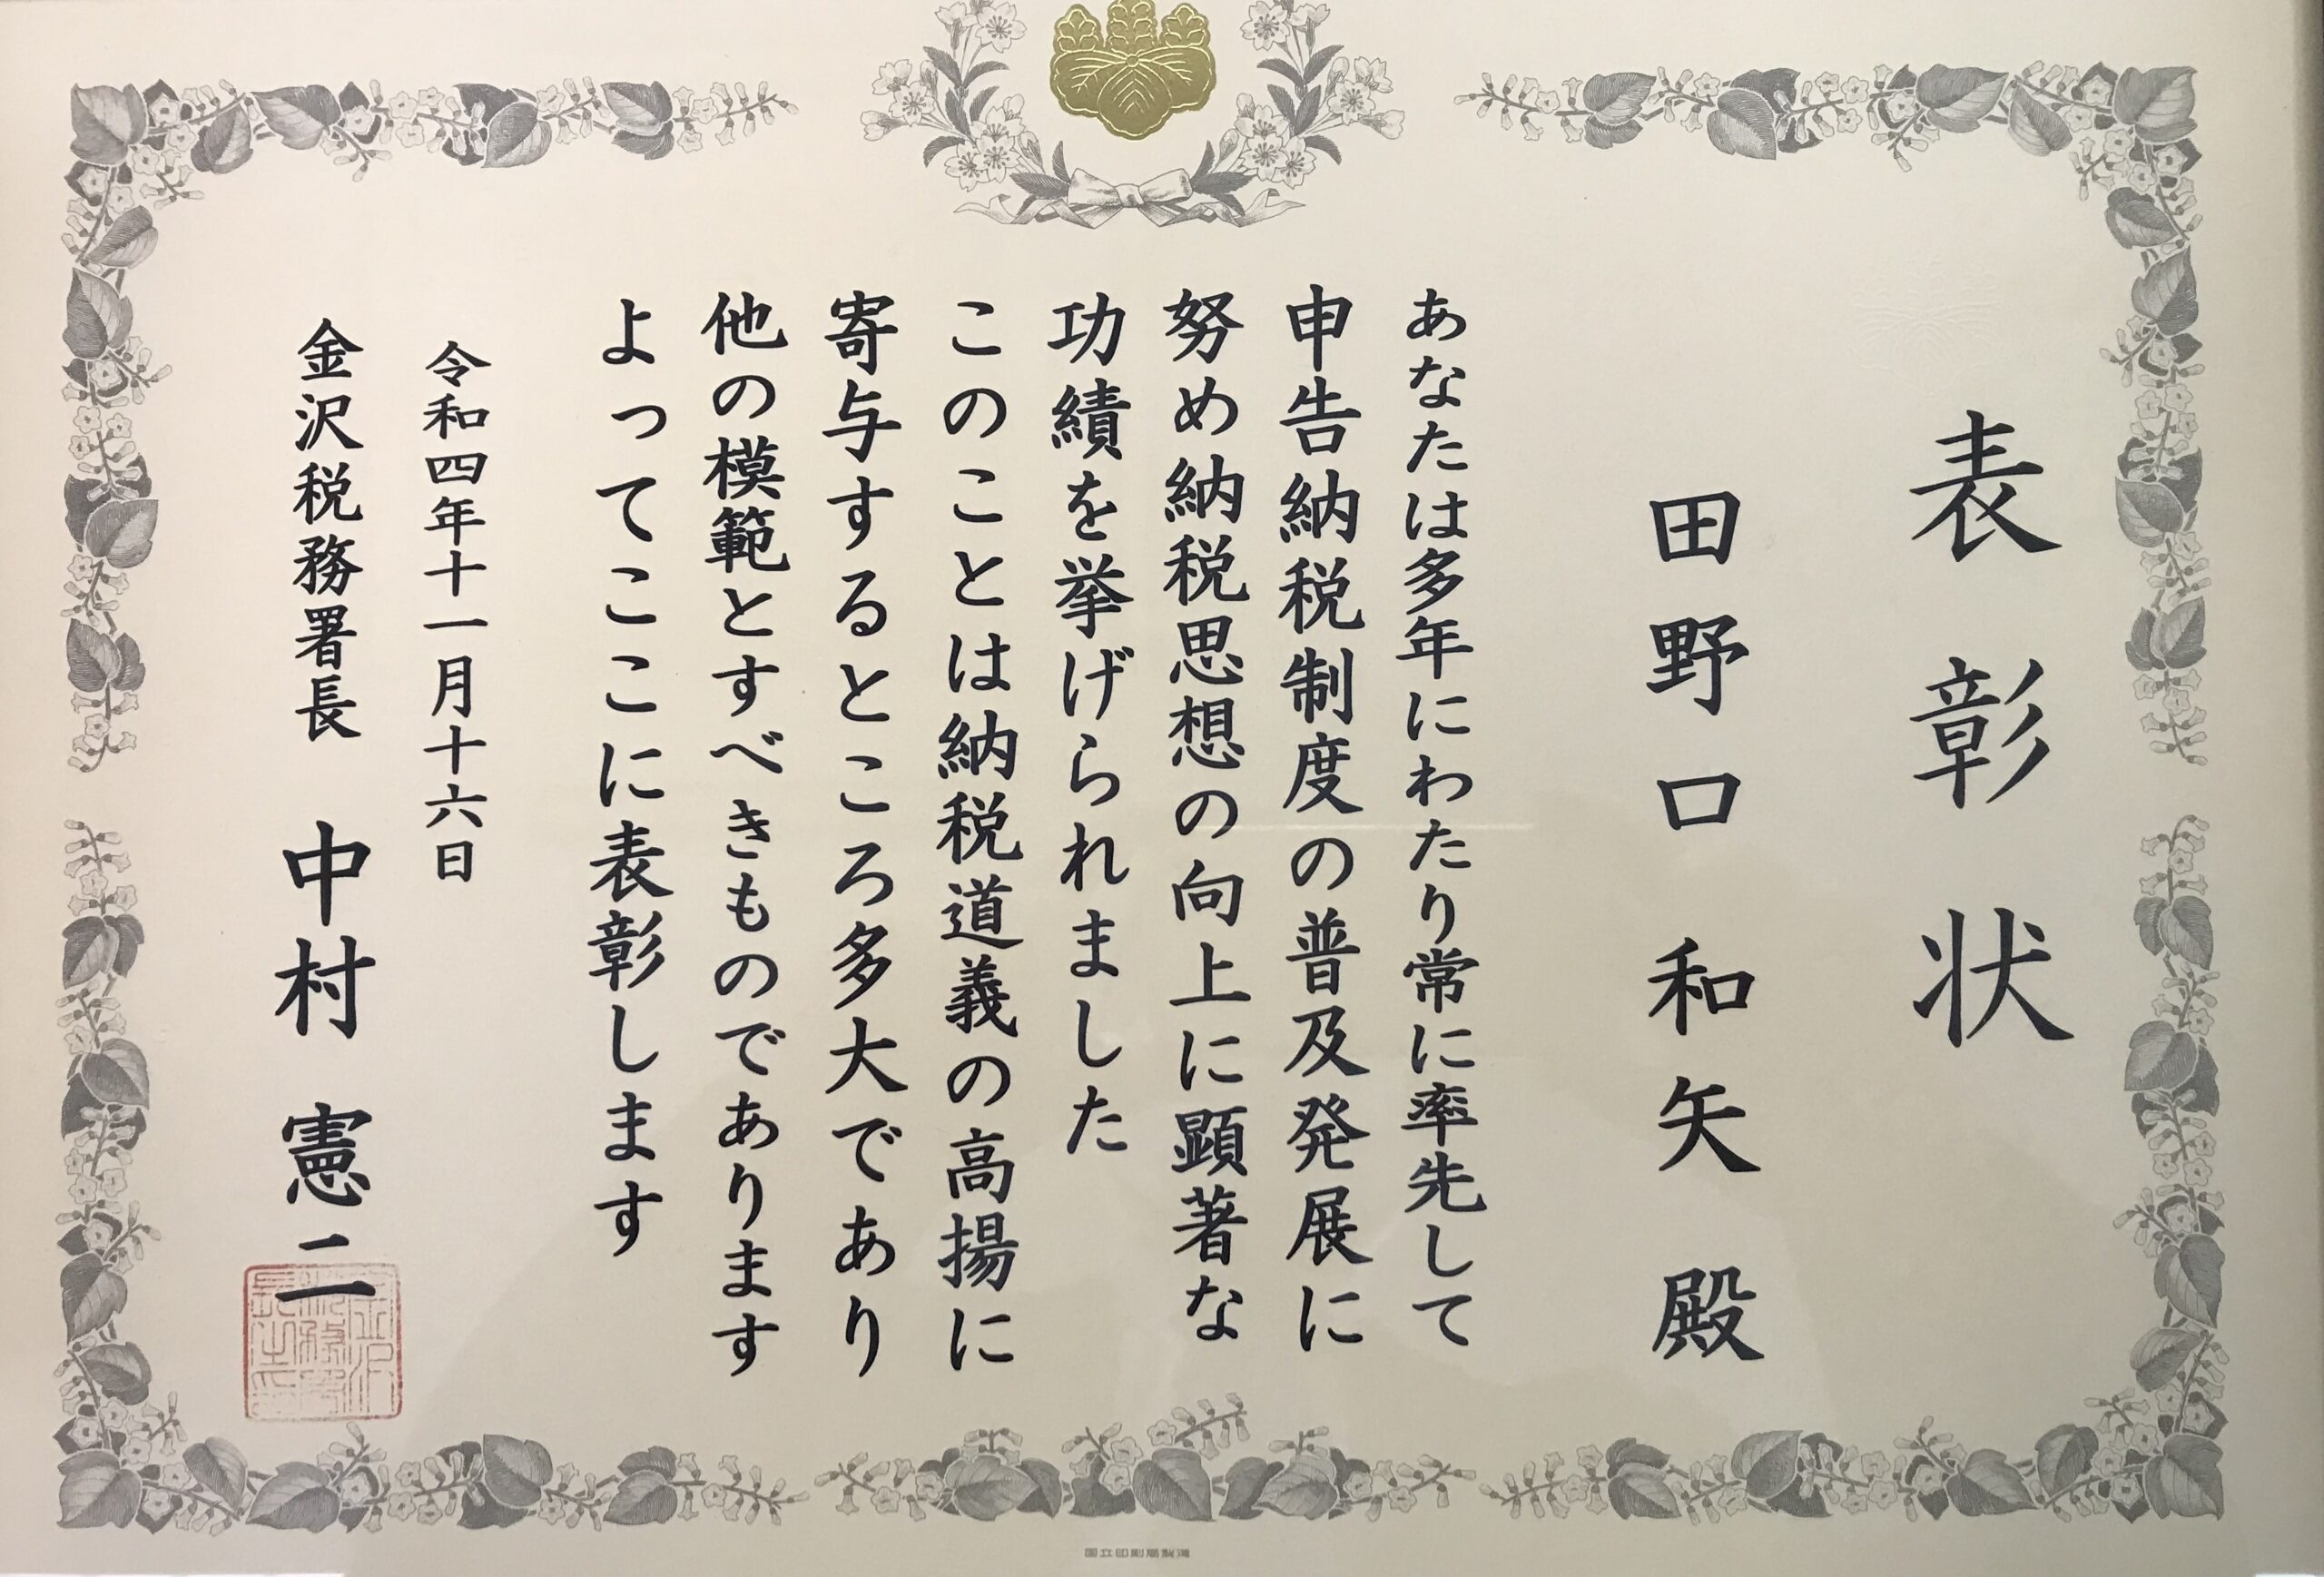 表彰状
田野口和矢殿
あなたは多年にわたり常に率先して
申告納税制度の普及発展に
努め納税思想の向上に顕著な
功績を挙げられました
このことは納税道義の高揚に
寄与するところ多大であり
他の模範とすべきものであります
よってここに表彰します
令和四年十一月十六日
金沢税務署長 中村憲二
国立印刷局製造